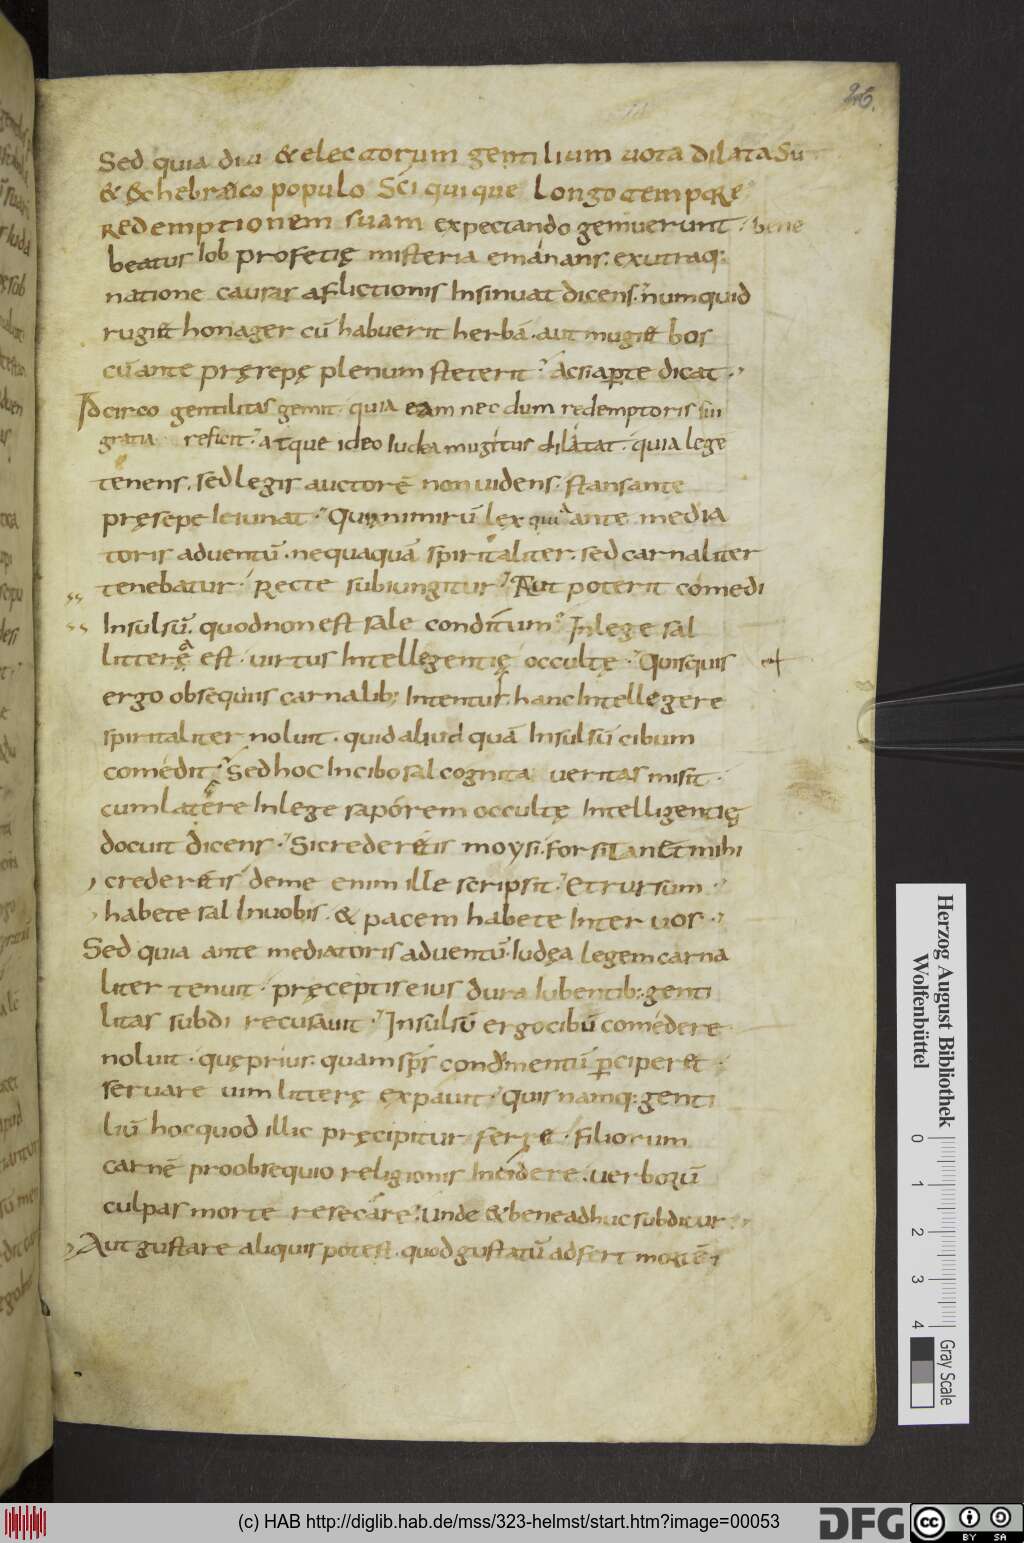 26.
Sed quia diu & electorum gentilium uota dilata su
& & ęchebraico populo Sc̄i quique longo tempore
redemptionem suam expectando gemuerunt. bene
beatus Iob profetię misteria emánans. exutraq:
natione causas aflictionis Insinuat dicens. numquid
rugi& honager cū habuerit herbā. aut mugi& bos
cū ante pręrepę plenum steterit? Acsi aperte dicat.
Idcirco gentilitas gemit quia eam nec dum redemptoris sui
gratia reficit. atque ideo Iudea mugitus dilátat. quia lege
tenens. sed legis auctorē non uidens. stans ante
pręsepe Ieiunat. Quinimirū lex qui ante media
toris aduentū. nequaquā spiritaliter. sed carnaliter
tenebatur. Recte subiungitur. Aut poterit cómedi
Insulsū. quod non est sale conditum? In lege sal
litterę est. uirtus Intellegentię occultę. Quisquis
ergo obsequiis carnalib; Intentus. hanc Intellegere
spiritaliter noluit. quid aliud quā Insulsū cibum
comédit; Sed hoc In cibo sal cognita ueritas misit.
cum latere In lege sapórem occultę Intelligentię
docuit dicens. Si crederetis moysi. forsitan et mihi
crederetis de me enim ille scripsit. Et rursum.
habete sal In uobis. & pacem habete Inter uos.
Sed quia ante mediatoris aduentū. Iudęa legem carna
liter tenuit. pręceptis eius dura Iubentib; genti
litas subdi recusauit. Insulsū ergo cibū comédere
noluit. quę prius. quam sp̄s condimentū perciperet.
seruare uim litterę expáuit. Quis namq: genti
liū hoc quod illic pręcipitur ferret. Filiorum
carnē pro obsequio religionis Incídere. uerborū
culpas morte resecáre. Unde & bene adhuc subditur.
Aut gustare aliquis potest. quod gustatū adfert mortē.
Herzog August Bibliothek
Wolfenbüttel
0 1 2 3 4
Gray Scale
(c) HAB http://diglib.hab.de/mss/323-helmst/start.htm?image=00053
DFG
cc BY SA